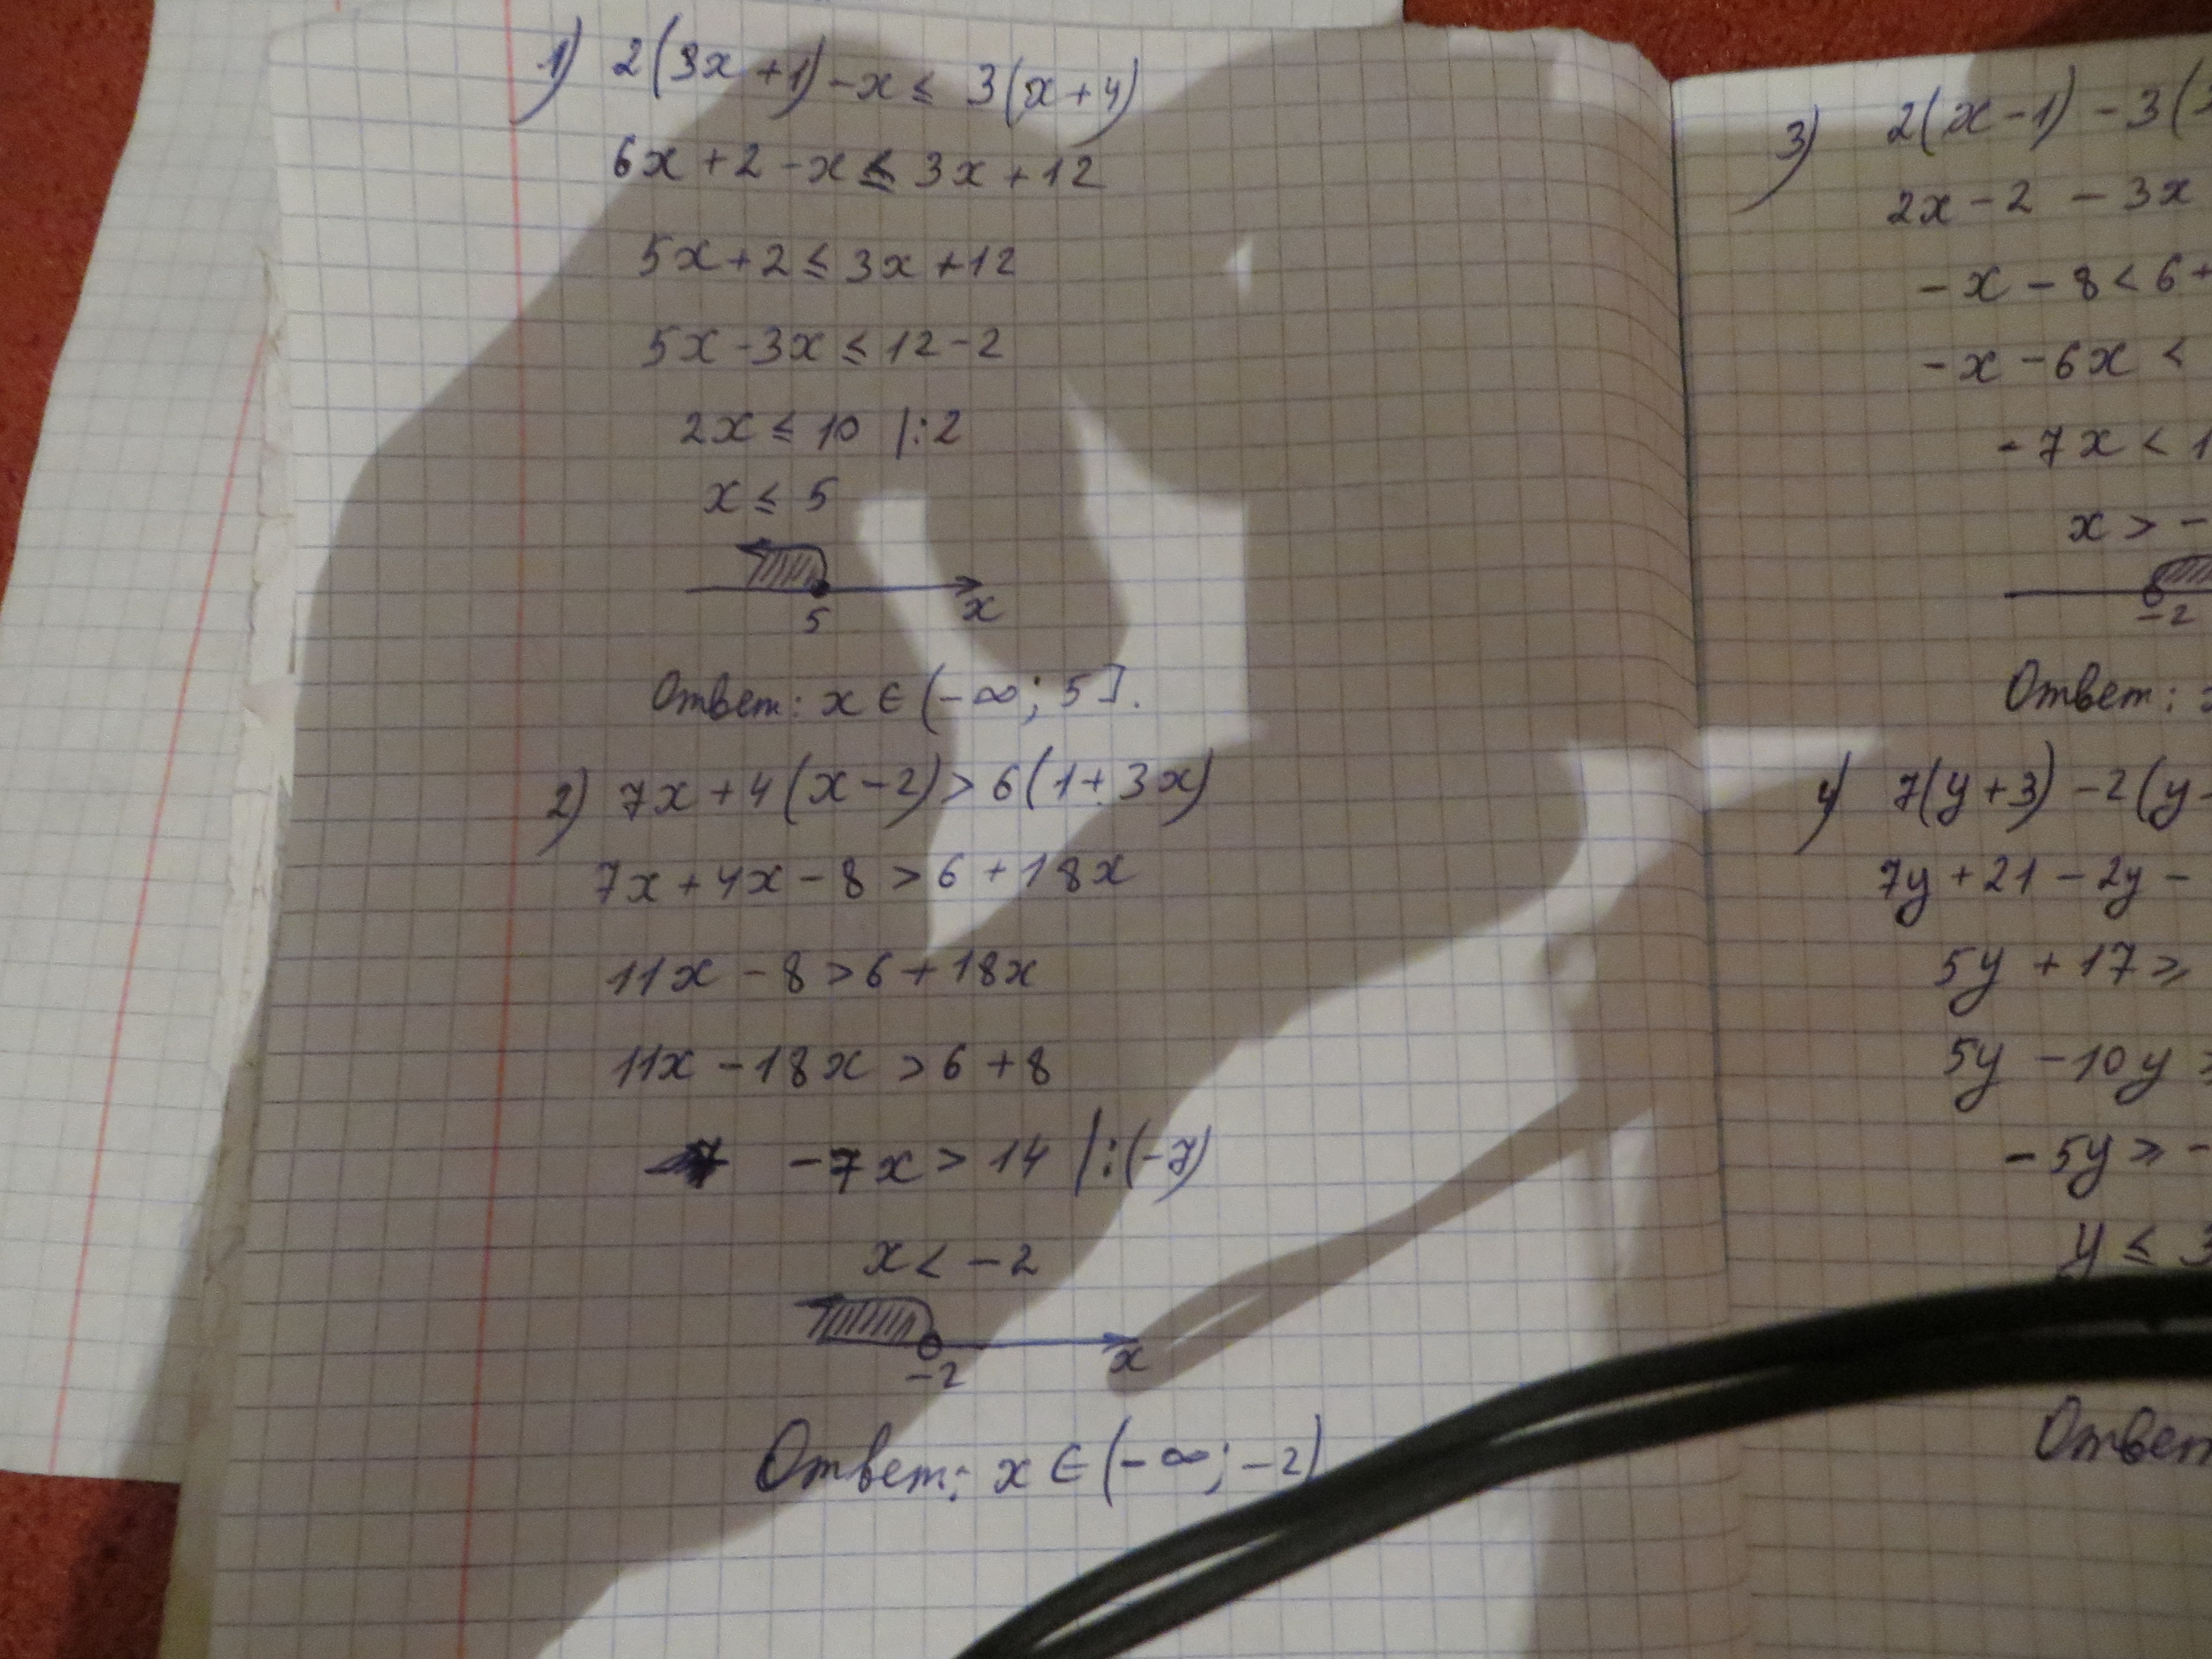 1) 2(3x+1)-x≤ 3(x+4)
6x+2-x≤ 3x+12
5x+2≤3x+12
5x-3x≤12-2
2x≤10 |:2
x≤5
5 x
Ответ: x∈(-∞; 5].
2) 7x+4(x-2)>6(1+3x)
7x+4x-8>6+18x
11x-8>6+18x
11x-18x>6+8
-7x>14 |:(-7)
x< -2
-2 x
Ответ: x∈(-∞; -2)
3) 2(x-1)-3(
2x-2-3x
-x-8<6+
-x-6x<
-7x<1
x>-
-2
Ответ:
4) 7(y+3)-2(y-
7y+21-2y-
5y+17≥
5y-10y≥
-5y≥-
y≤3
Ответ